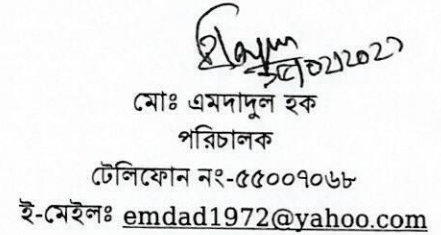 মোঃ এমদাদুল হক
পরিচালক
টেলিফোন নং-৫৫০০৭০৬৮
ই-মেইলঃ emdad1972@yahoo.com